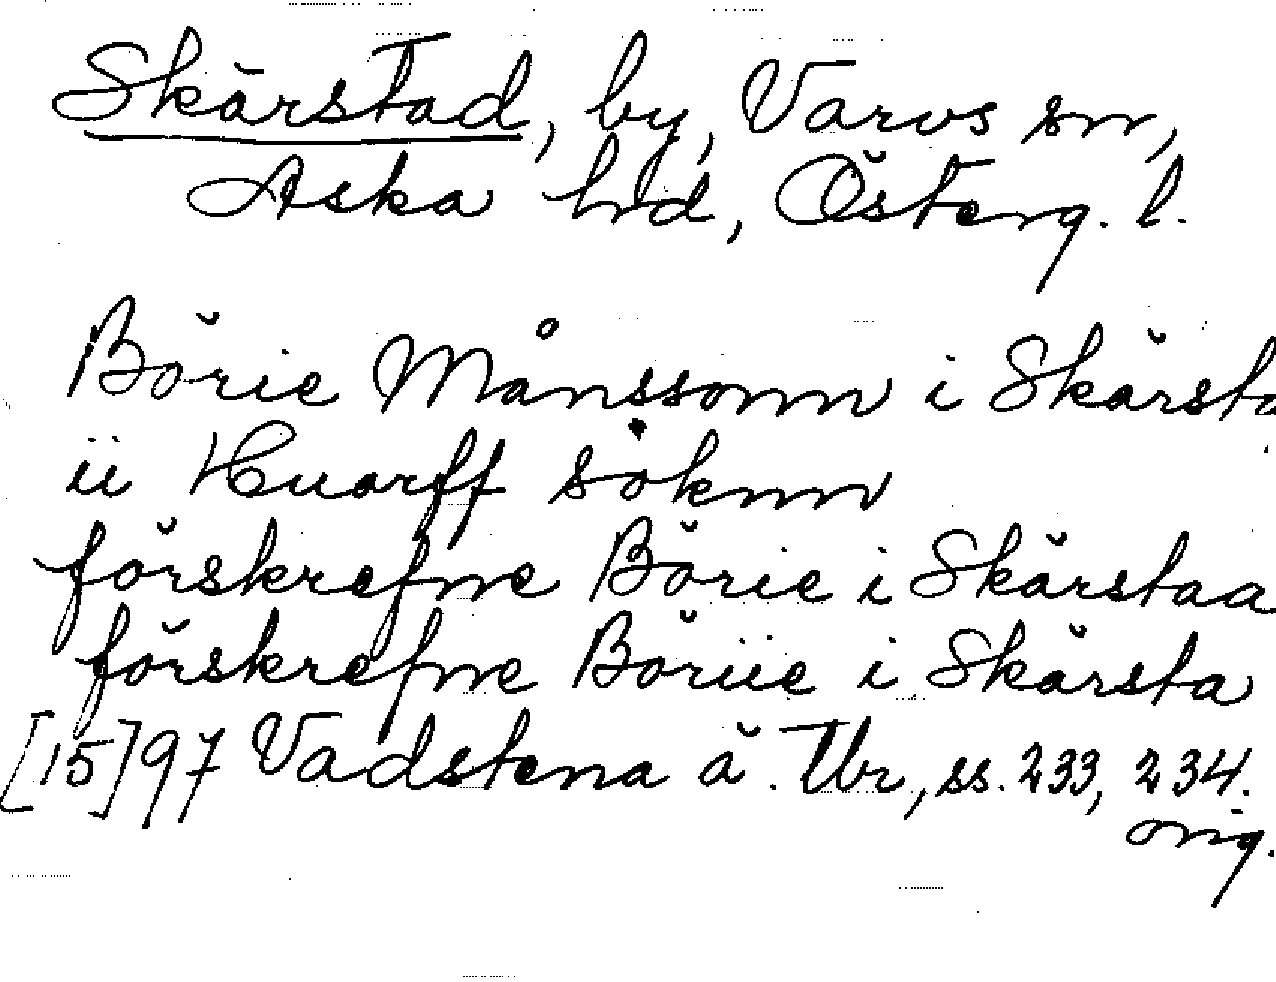 Skärstad, by, Varvs sn,
Aska hd, Österg. l.
Börie Månssonn i Skärsta
ii Huarff soknn
förskrefne Börie i Skärstaa
förskrefne Böriie i Skärsta
[15]97 Vadstena ä. Tbr, ss. 233, 234.
orig.